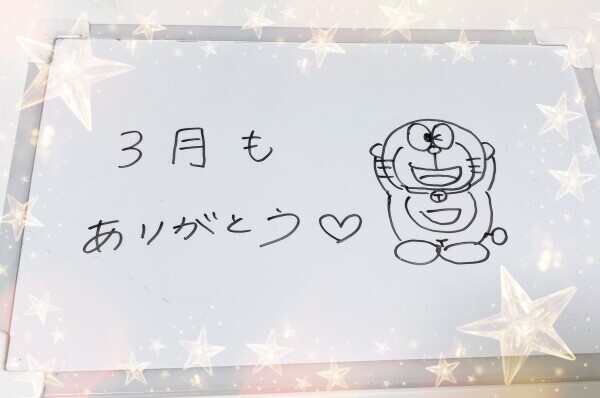 3月も
ありがとう♡